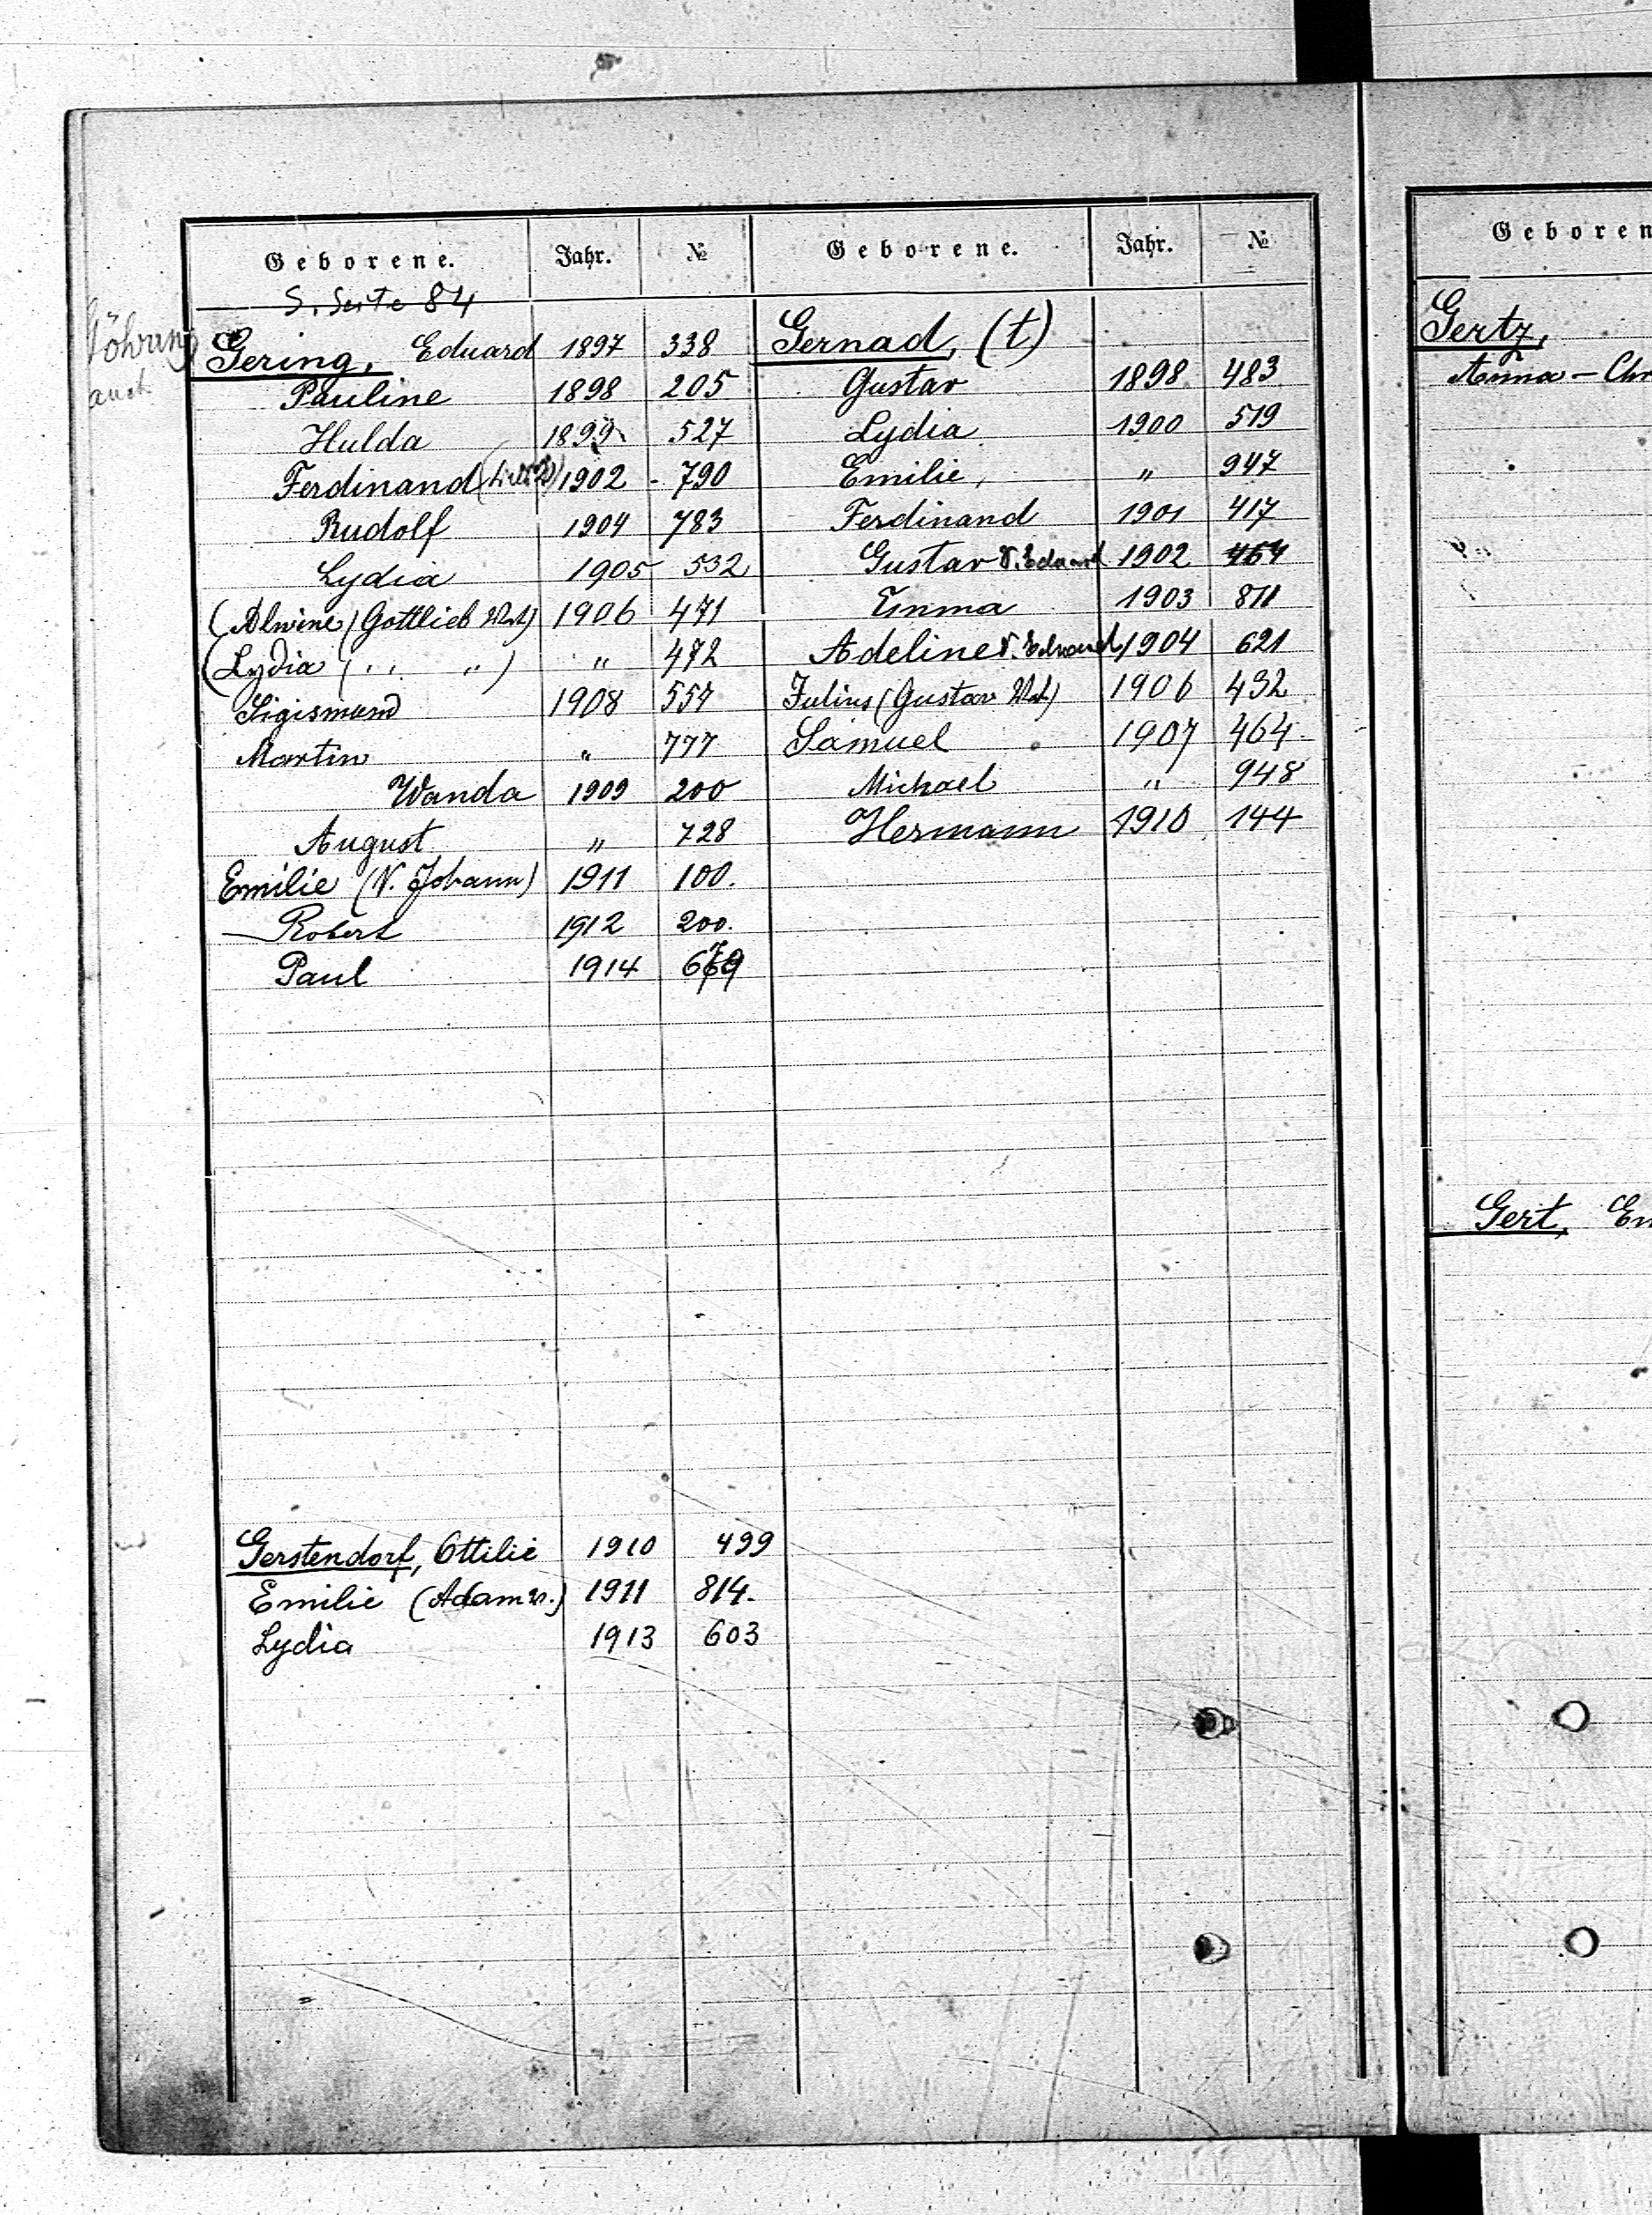 Geborene. Jahr. №
S. Seite 84
Göhring
auch
Gering, Eduard 1897 338
Pauline 1898 205
Hulda 1899 527
Ferdinand 1902 - 790
Rudolf 1904 783
Lydia 1905 532
(Alwine (Gottlieb Vat) 1906 471
(Lydia ( ,, ,, ) " 472
Sigismund 1908 557
Martin " 777
Wanda 1909 200
August " 728
Emilie (V. Johann) 1911 100.
Robert 1912 200.
Paul 1914 679
Gerstendorf, Ottilie 1910 499
Emilie (Adam v.) 1911 814.
Lydia 1913 603
Geborene. Jahr. №
Gernad, (t)
Gustav 1898 483
Lydia 1900 519
Emilie, " 947
Ferdinand 1901 417
Gustav V. Eduard 1902 464
Emma 1903 811
Adeline V. Eduard 1904 621
Julius (Gustav Vat) 1906 432
Samuel 1907 464
Michael " 948
Hermann 1910 144
Geboren
Gertz,
Anna - Chr
Gert, Em